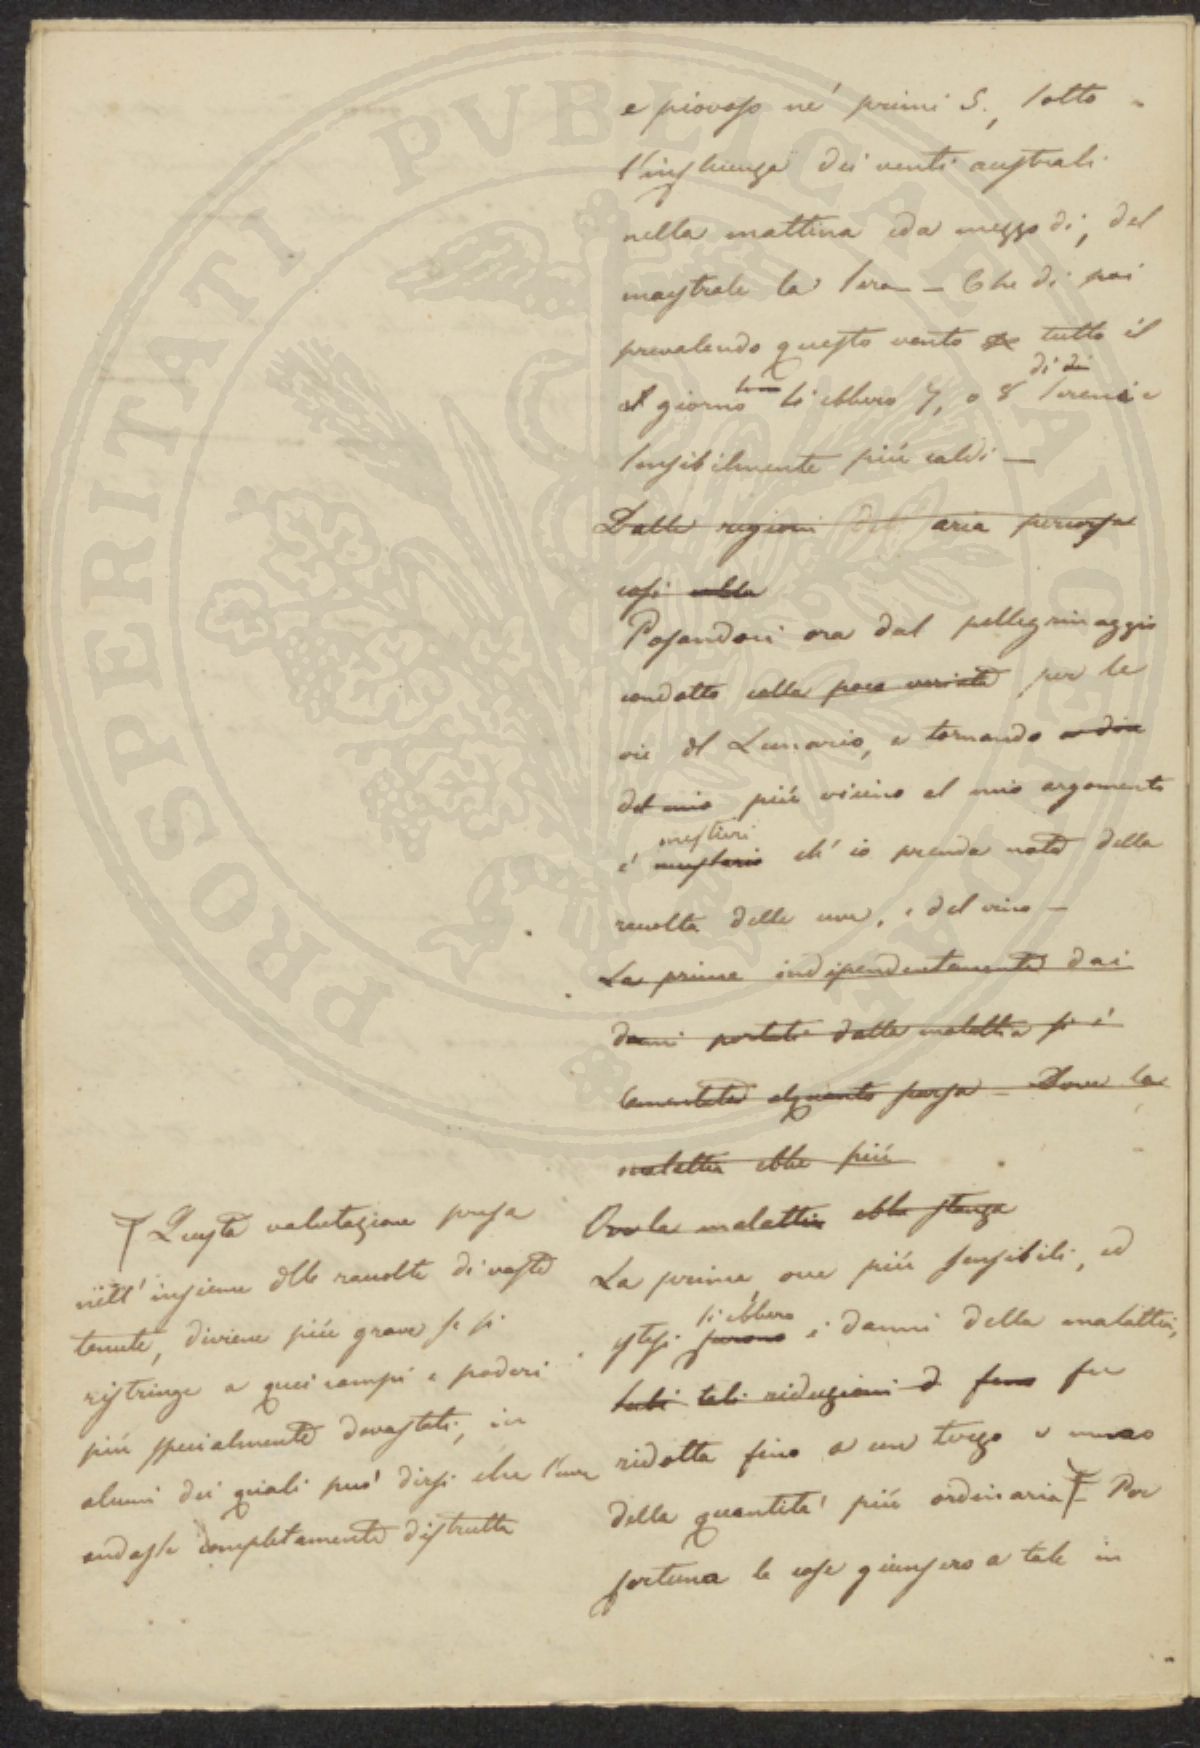 e piovoso ne' primi 5., sotto
l'influenza dei venti australi
nella mattina e da mezzo dì, del
maestrale la sera — Che di poi
prevalendo questo vento tutto il
giorno si ebbero 7, o 8 dì sereni e
sensibilmente più caldi —
Dalle regioni dell' aria percorse
così
Posandoci ora dal pellegrinaggio
condotto colla poca varietà per le
vie del Lunario, e tornando
del mio più vicino al mio argomento
mestieri
è ch' io prenda nota della
raccolta delle uve, e del vino —
La prima indipendentemente dai
danni portati dalla malattia si è
lamentata alquanto scarsa — Dove la
malattia ebbe più
Ove la malattia ebbe stanza
La prima ove più sensibili, ed
si ebbero
estesi furono i danni della malattia,
tali riduzioni fu
ridotta fino a un terzo e meno
della quantità più ordinaria — Per
fortuna le cose giunsero a tale in
Questa valutazione presa
nell' insieme delle raccolte di vaste
tenute, diviene più grave se si
ristringe a quei campi e poderi
più specialmente devastati, in
alcuni dei quali può dirsi che l'uva
andasse completamente distrutta
PROSPERITATI PVBLICAE AVGENDAE